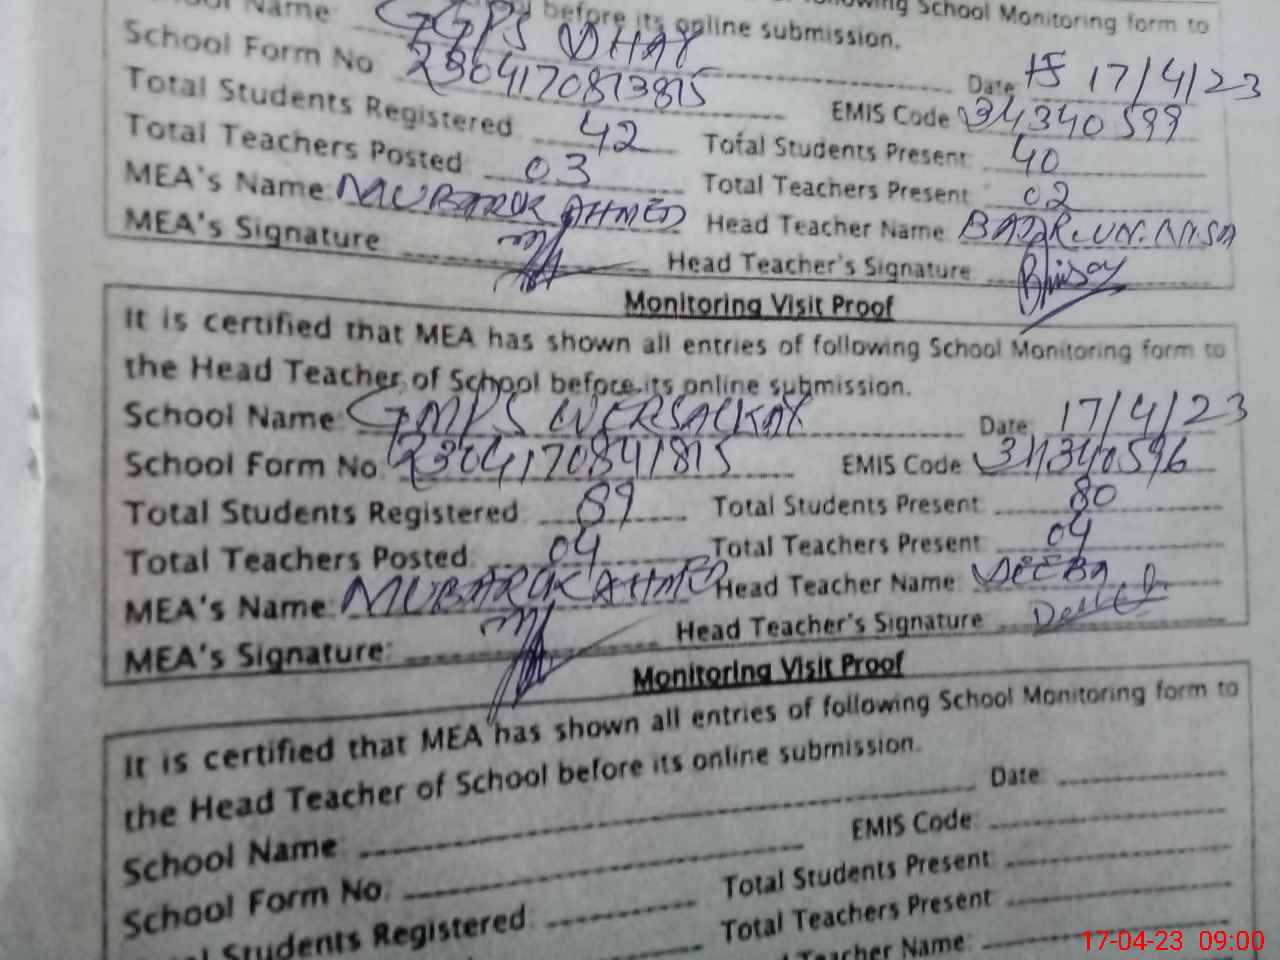 School Monitoring form to
School Name: GGPS DHAY before its online submission.
School Form No 2304170813815 Date 17/4/23
Total Students Registered 42 EMIS Code 34340599
Total Teachers Posted: 03 Total Students Present: 40
MEA's Name: MUBARUK AHMED Total Teachers Present 02
MEA's Signature Head Teacher Name BADR.UN.NISA
Head Teacher's Signature
Monitoring Visit Proof
It is certified that MEA has shown all entries of following School Monitoring form to
the Head Teacher of School before its online submission.
School Name GMPS WERSALKAY Date: 17/4/23
School Form No. 2304170841815 EMIS Code 34340596
Total Students Registered 89 Total Students Present 80
Total Teachers Posted: 04 Total Teachers Present 04
MEA's Name: MUBARUK AHMED Head Teacher Name: DEEBA
MEA's Signature: Head Teacher's Signature
Monitoring Visit Proof
It is certified that MEA has shown all entries of following School Monitoring form to
the Head Teacher of School before its online submission.
School Name Date
School Form No. EMIS Code:
Students Registered Total Students Present
Total Teachers Present
Teacher Name:
17-04-23 09:00